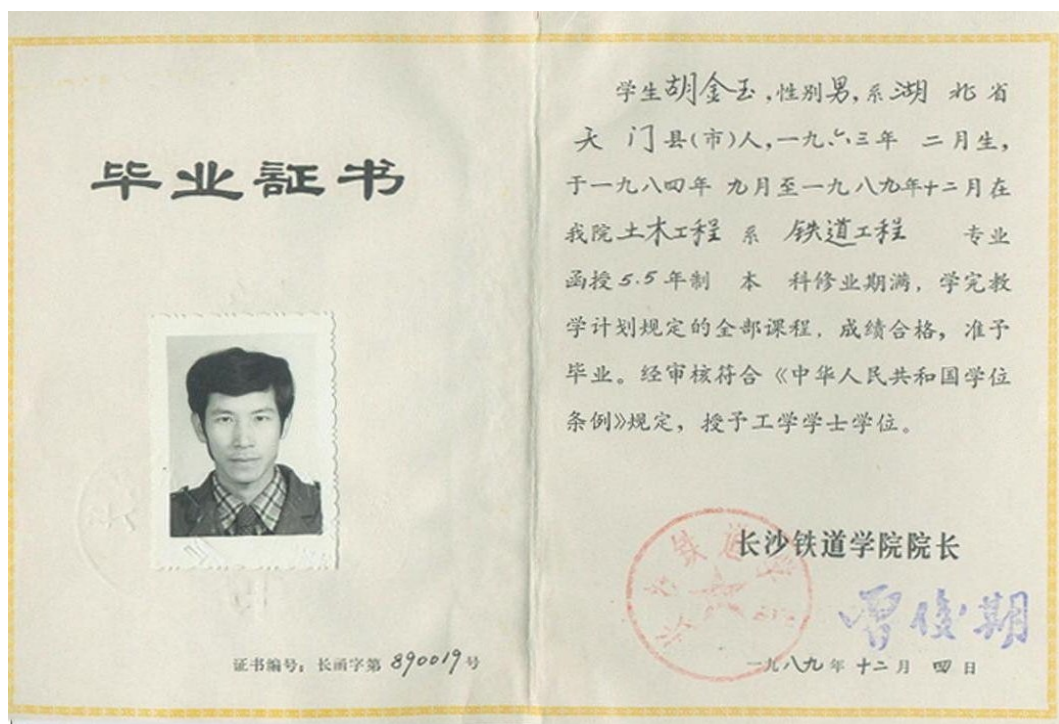 毕业証书
证书编号：长函字第890019号
学生胡金玉，性别男，系湖北省
天门县（市）人，一九六三年 二月生，
于一九八四年 九月至一九八九年十二月在
我院土木工程系 铁道工程 专业
函授5.5年制 本 科修业期满，学完教
学计划规定的全部课程，成绩合格，准予
毕业。经审核符合《中华人民共和国学位
条例》规定，授予工学学士学位。
长沙铁道学院院长
曾俊期
一九八九年十二月四日